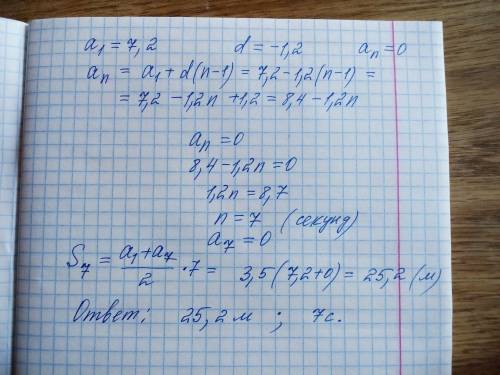 a₁ = 7,2 d = -1,2 aₙ = 0
aₙ = a₁ + d(n-1) = 7,2 - 1,2(n-1) =
= 7,2 - 1,2n + 1,2 = 8,4 - 1,2n
aₙ = 0
8,4 - 1,2n = 0
1,2n = 8,7
n = 7 (секунд)
a₇ = 0
S₇ = (a₁ + a₇)/2 · 7 = 3,5(7,2+0) = 25,2 (м)
Ответ: 25,2 м ; 7с.